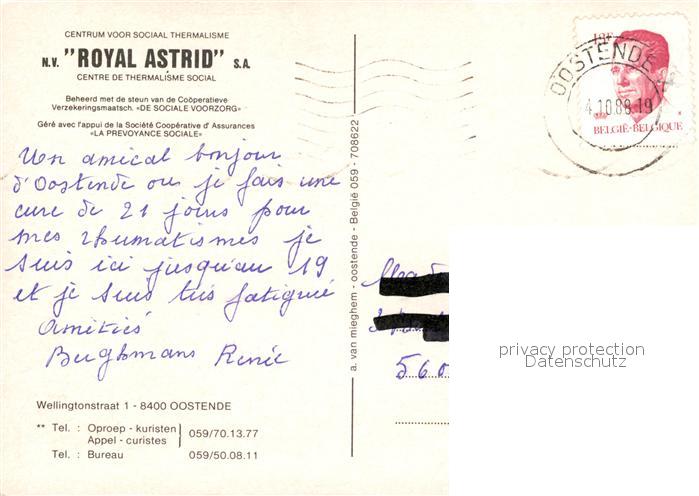 CENTRUM VOOR SOCIAAL THERMALISME
N.V. "ROYAL ASTRID" S.A.
CENTRE DE THERMALISME SOCIAL
Beheerd met de steun van de Coöperatieve
Verzekeringsmaatsch. «DE SOCIALE VOORZORG»
Géré avec l'appui de la Société Coopérative d'Assurances
«LA PREVOYANCE SOCIALE»
Un amical bonjour
d'Oostende ou je fais une
cure de 21 jours pour
mes rhumatismes je
suis ici jusqu'au 19
et je suis très fatigué
Amitiés
Berghmans Renée
Wellingtonstraat 1 - 8400 OOSTENDE
** Tel. : Oproep - kuristen
Appel - curistes
059/70.13.77
Tel. : Bureau 059/50.08.11
a. van mieghem - oostende - België 059 - 708622
13F
OOSTENDE
4.10.88.19
BELGIË-BELGIQUE
560
privacy protection
Datenschutz